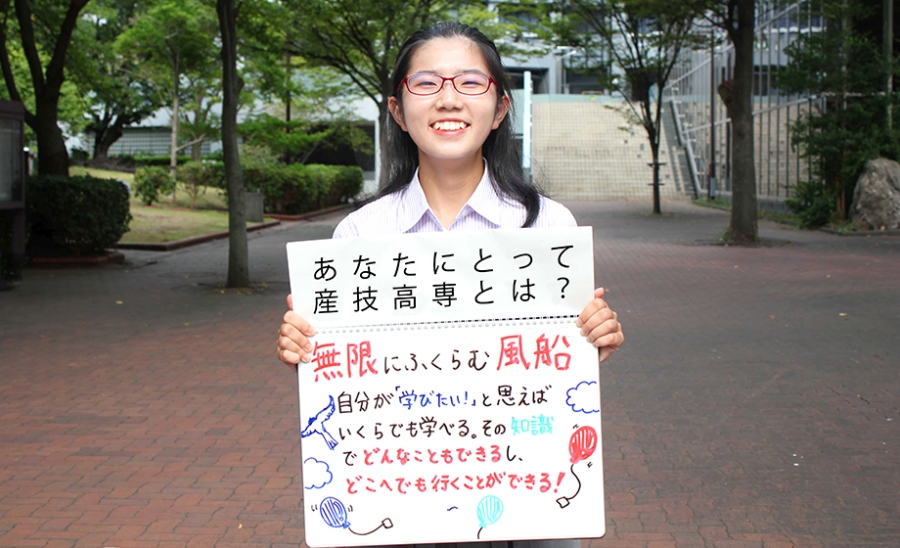 あなたにとって
産技高専とは？
無限にふくらむ風船
自分が「学びたい！」と思えば
いくらでも学べる。その知識
でどんなこともできるし、
どこへでも行くことができる！